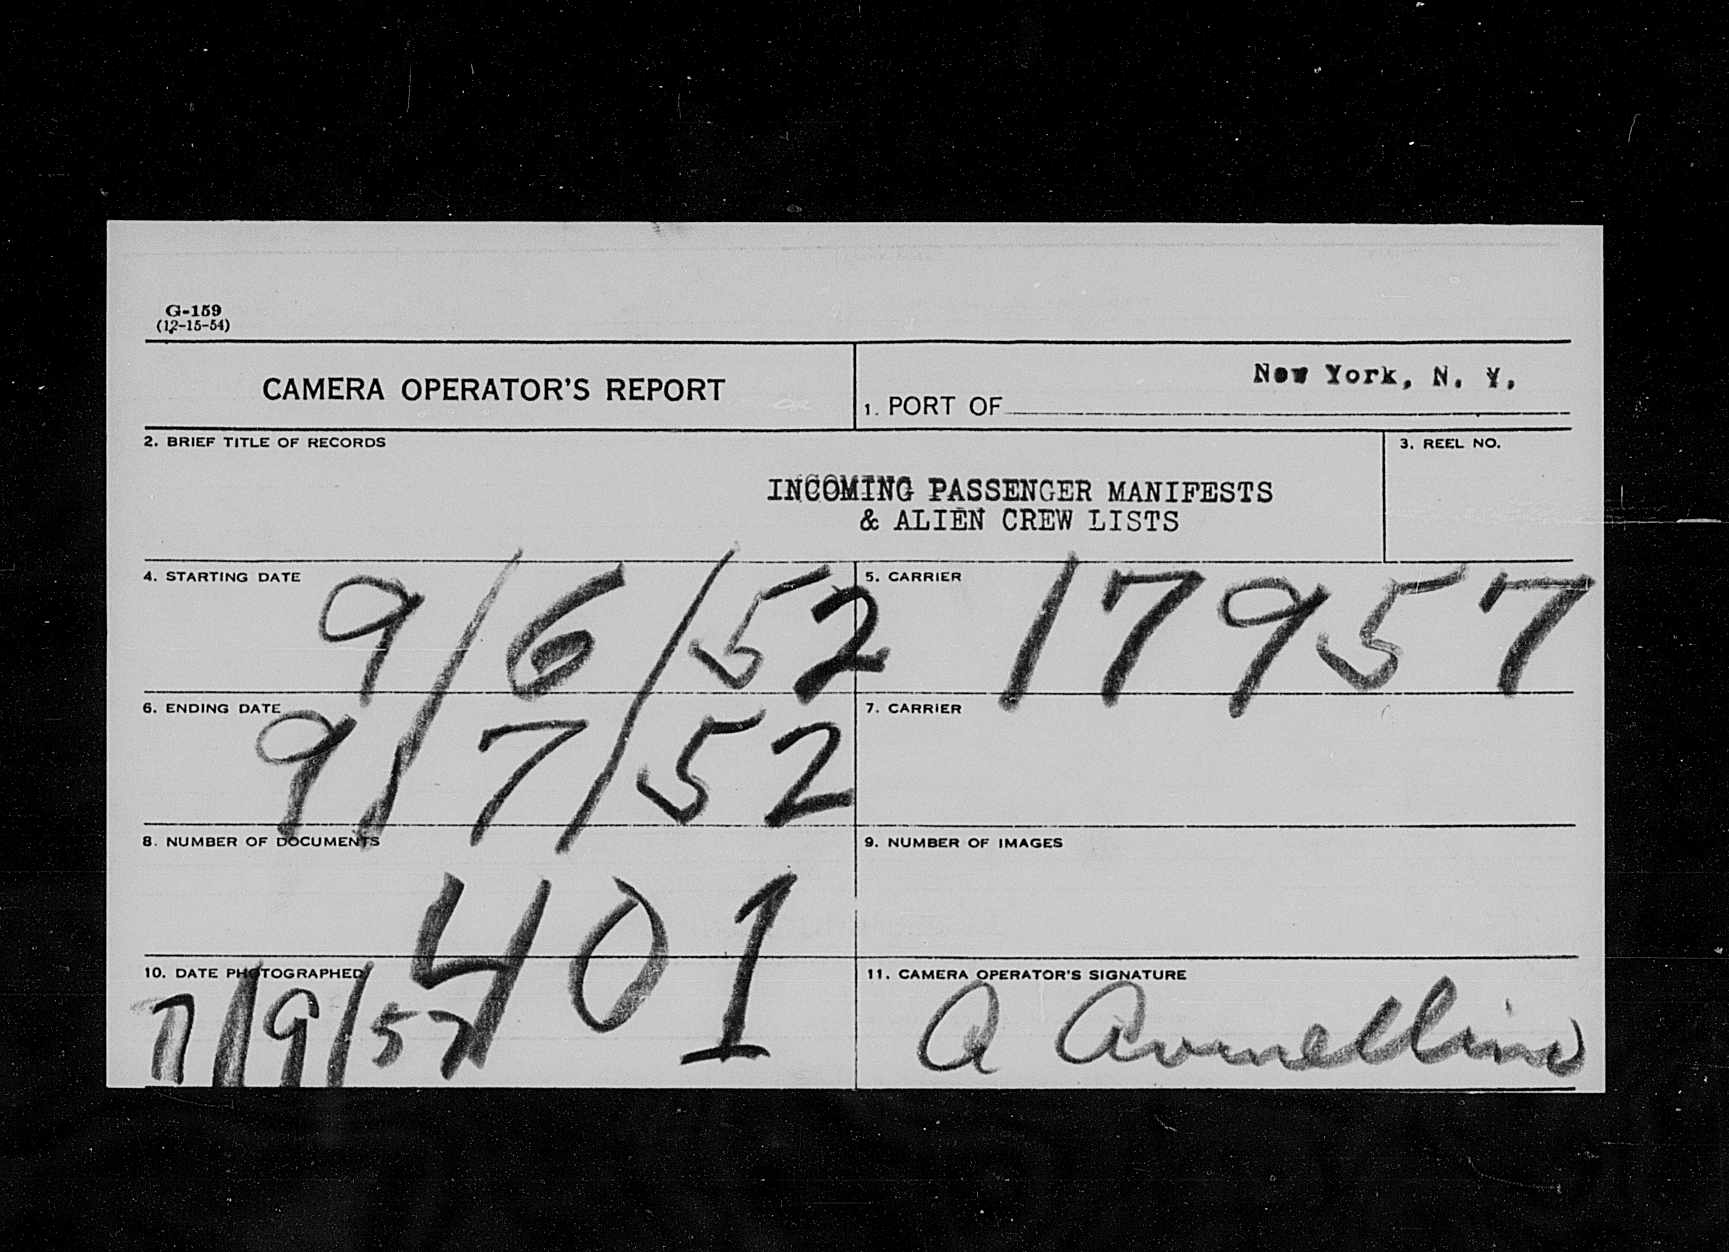 G-159
(12-15-54)
CAMERA OPERATOR'S REPORT
1. PORT OF New York, N. Y.
2. BRIEF TITLE OF RECORDS
INCOMING PASSENGER MANIFESTS
& ALIEN CREW LISTS
3. REEL NO.
4. STARTING DATE 9/6/52
5. CARRIER 17957
6. ENDING DATE 9/7/52
7. CARRIER
8. NUMBER OF DOCUMENTS 401
9. NUMBER OF IMAGES
10. DATE PHOTOGRAPHED 7/9/57
11. CAMERA OPERATOR'S SIGNATURE
A